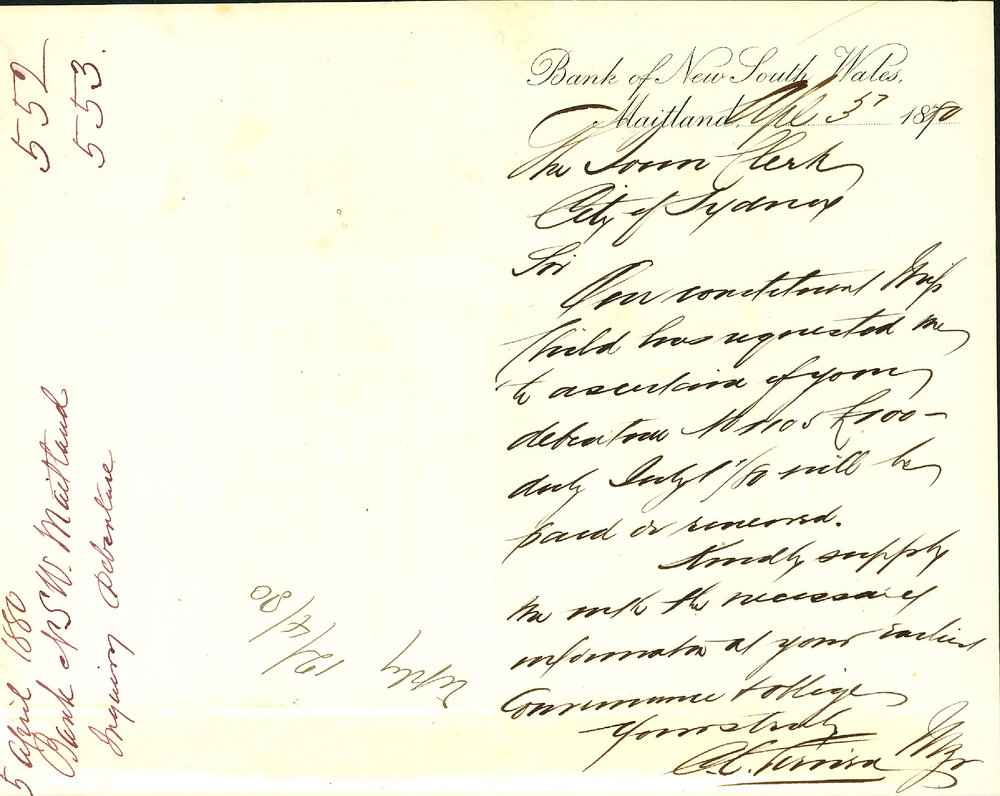 552
553.
5 April 1880
Bank NSW. Maitland
Inquiry Debenture
reply
12/4/80
Bank of New South Wales,
Maitland, Apl 5th 1880
The Town Clerk
City of Sydney
Sir
Our constituent
Child has requested me
to ascertain if your
debenture No 1105 £100-
due July 1/80 will be
paid or renewed.
Kindly supply
me with the necessary
information at your earliest
Convenience & oblige
Yours truly
Mgr